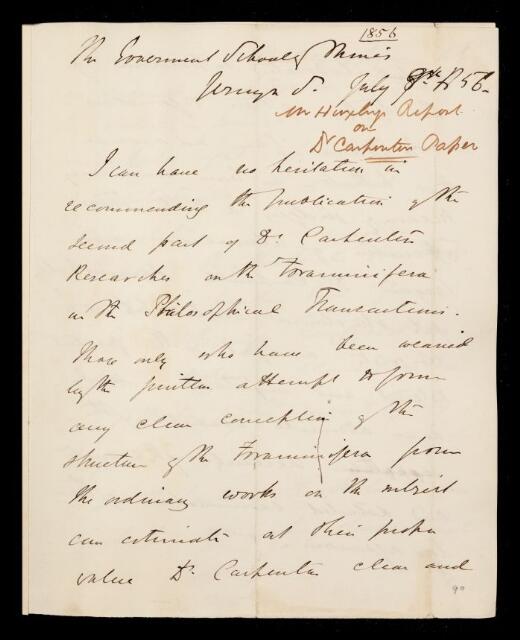 1856
The Government School of Mines
Jermyn St. July 9th 1856
Mr Huxley's Report
on
Dr Carpenter's Paper
I can have no hesitation in
recommending the publication of the
second part of Dr. Carpenter's
Researches on the Foraminifera
in the Philosophical Transactions.
Those only who have been wearied
by the fruitless attempt to form
any clear conception of the
structure of the Foraminifera from
the ordinary works on the subject
can estimate at their proper
value Dr. Carpenter clear and
90